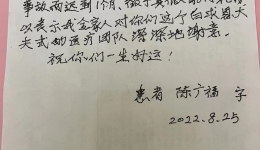 事故而迟到1个月,
以表示我全家人对你们这个白求恩大
夫式的医疗团队深深地谢意。
祝你们一生好运!
患者 陈广福 字
2022.8.25